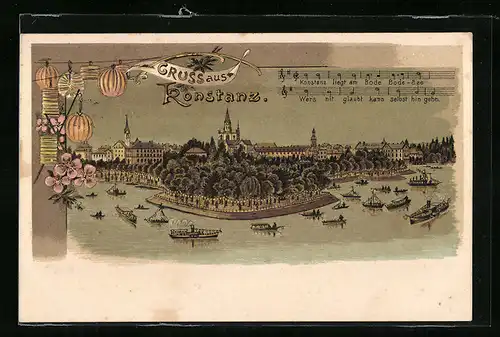 GRUSS aus
Konstanz.
Konstanz liegt am Bode Bode-See
Wers nit glaubt kann selbst hin gehn.